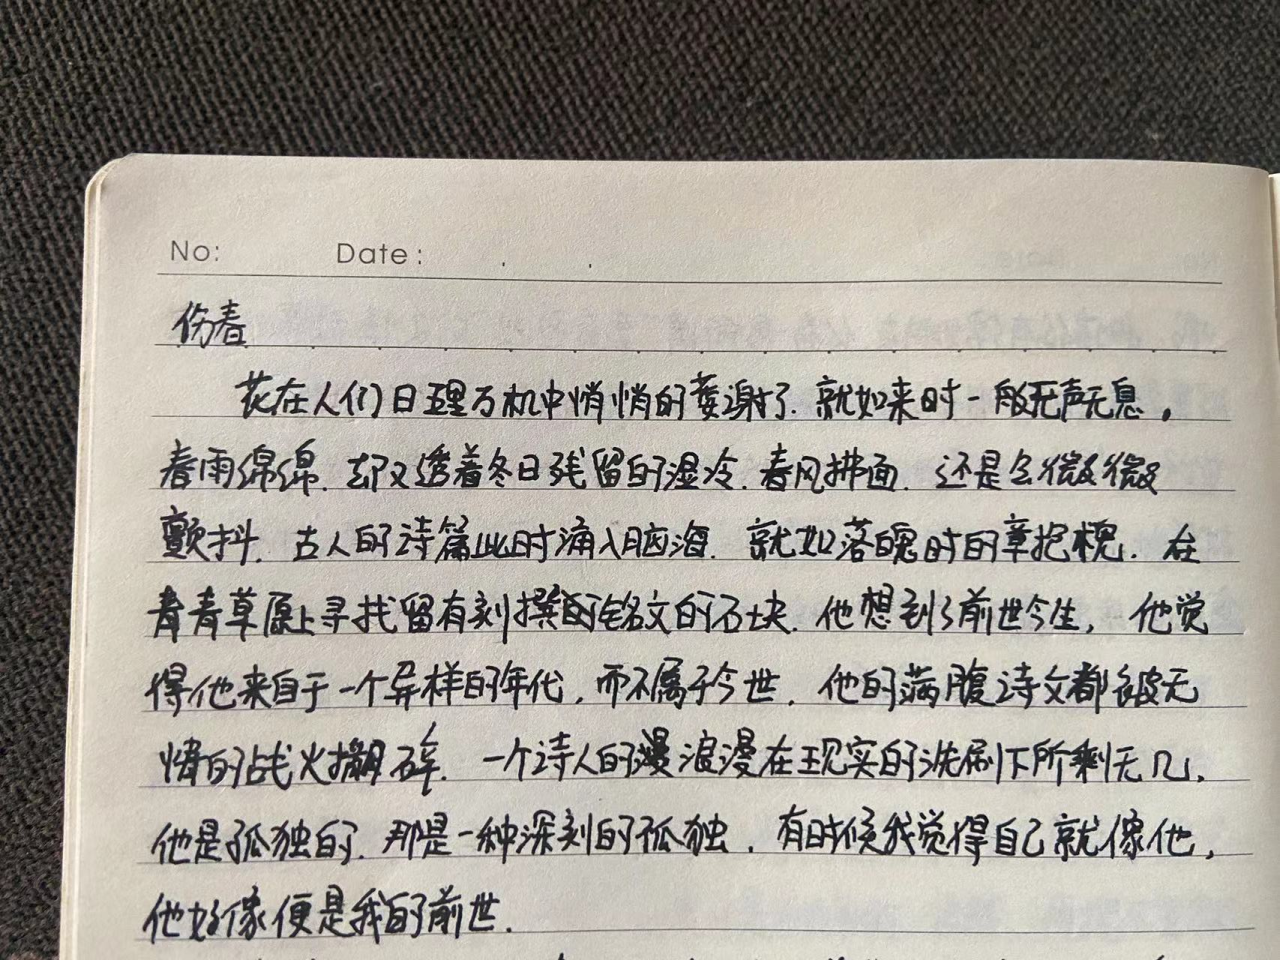 No: Date: . .
伤春
花在人们日理万机中悄悄的萎谢了.就如来时一般无声无息,
春雨绵绵.却又透着冬日残留的湿冷.春风拂面.还是会微微
颤抖.古人的诗篇此时涌入脑海.就如落魄时的章抱槐.在
青青草原上寻找留有刻撰的铭文的石块.他想到了前世今生,他觉
得他来自于一个异样的年代,而不属于今世.他的满腹诗文都被无
情的战火撕碎.一个诗人的浪漫在现实的洗刷下所剩无几,
他是孤独的.那是一种深刻的孤独.有时候我觉得自己就像他,
他好像便是我的前世.